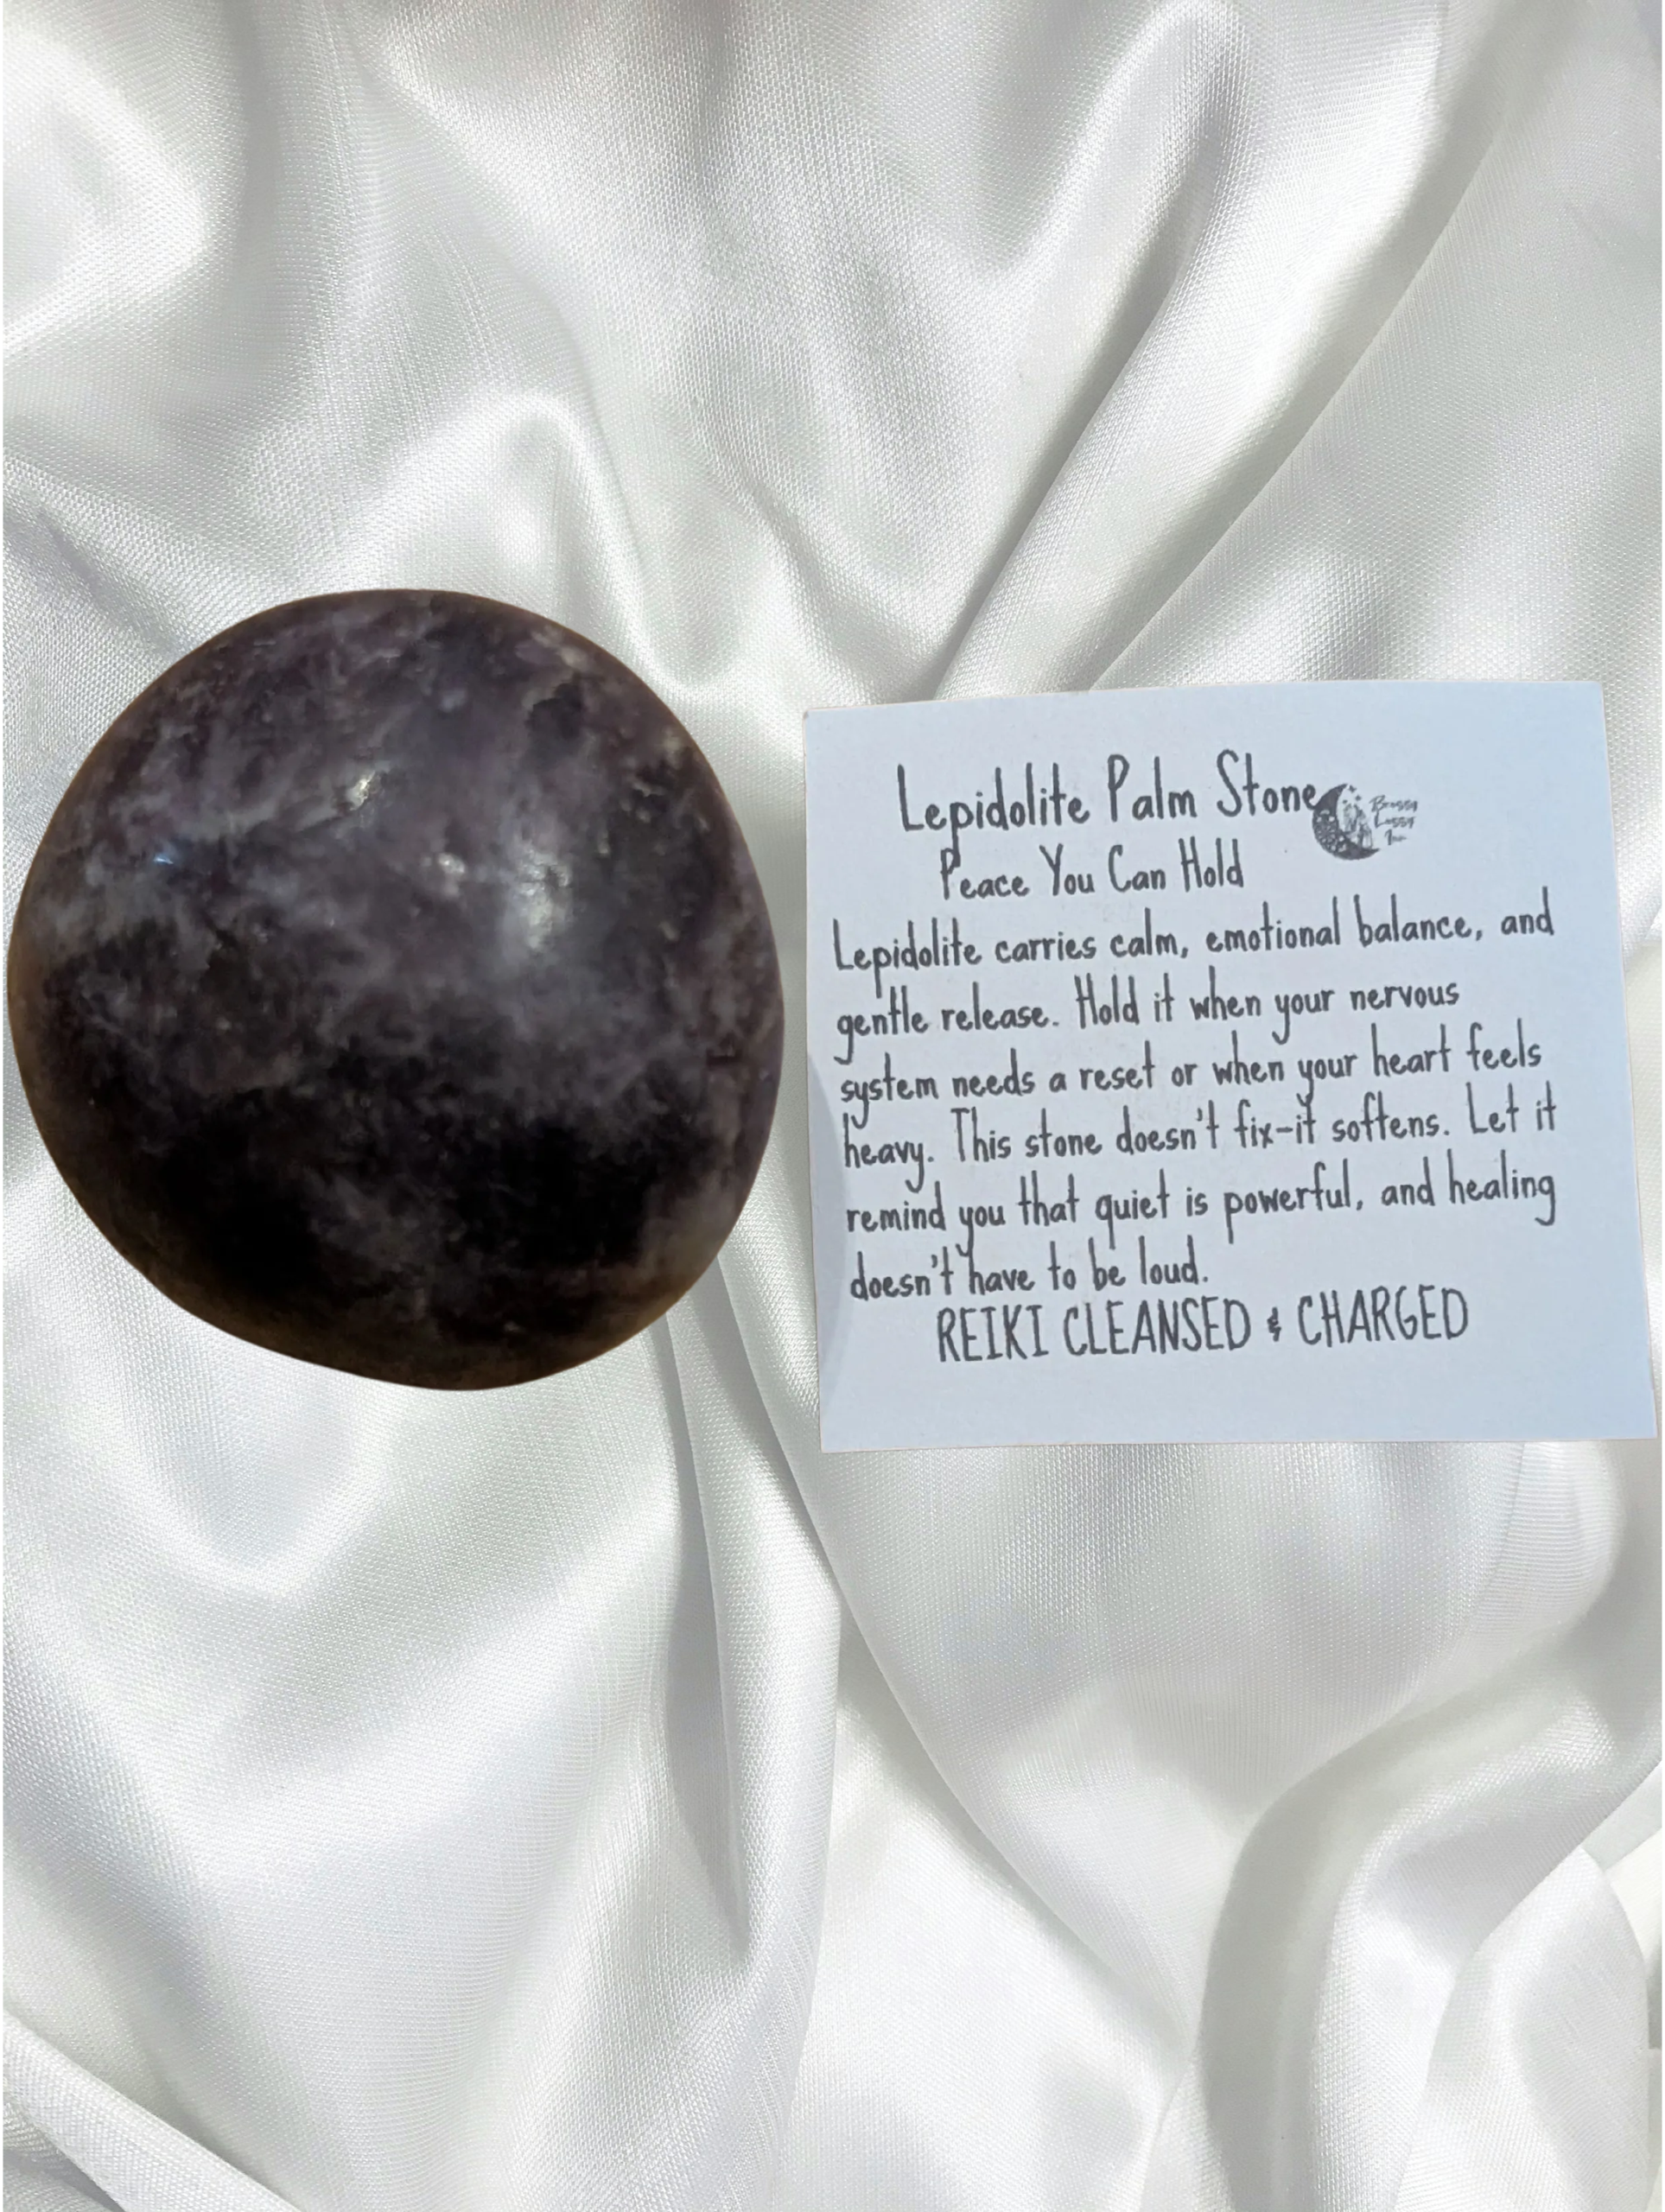 Lepidolite Palm Stone
Brassy
Lassy
Inn
Peace You Can Hold
Lepidolite carries calm, emotional balance, and
gentle release. Hold it when your nervous
system needs a reset or when your heart feels
heavy. This stone doesn't fix-it softens. Let it
remind you that quiet is powerful, and healing
doesn't have to be loud.
REIKI CLEANSED & CHARGED